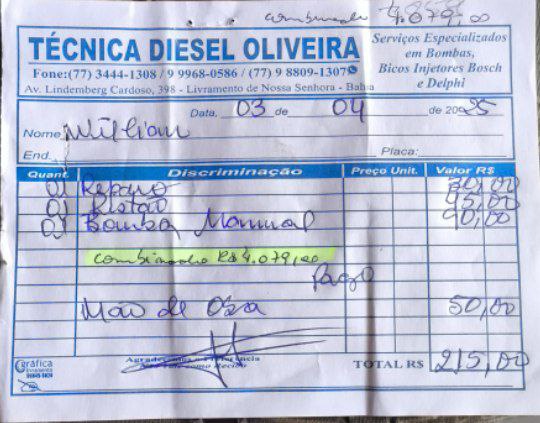 combinado 4.079,00
TÉCNICA DIESEL OLIVEIRA
Fone:(77) 3444-1308 / 9 9968-0586 / (77) 9 8809-1307
Av. Lindemberg Cardoso, 398 - Livramento de Nossa Senhora - Bahia
Serviços Especializados
em Bombas,
Bicos Injetores Bosch
e Delphi
Data, 03 de 04 de 2025
Nome Willian
End. Placa:
Quant. Discriminação Preço Unit. Valor R$
01 Reparo 30,00
01 Pistão 45,00
01 Bomba Manual 90,00
combinado R$ 4.079,00
Pago
Mão de Obra 50,00
Agradecemos a Preferência
gráfica
TOTAL R$ 215,00